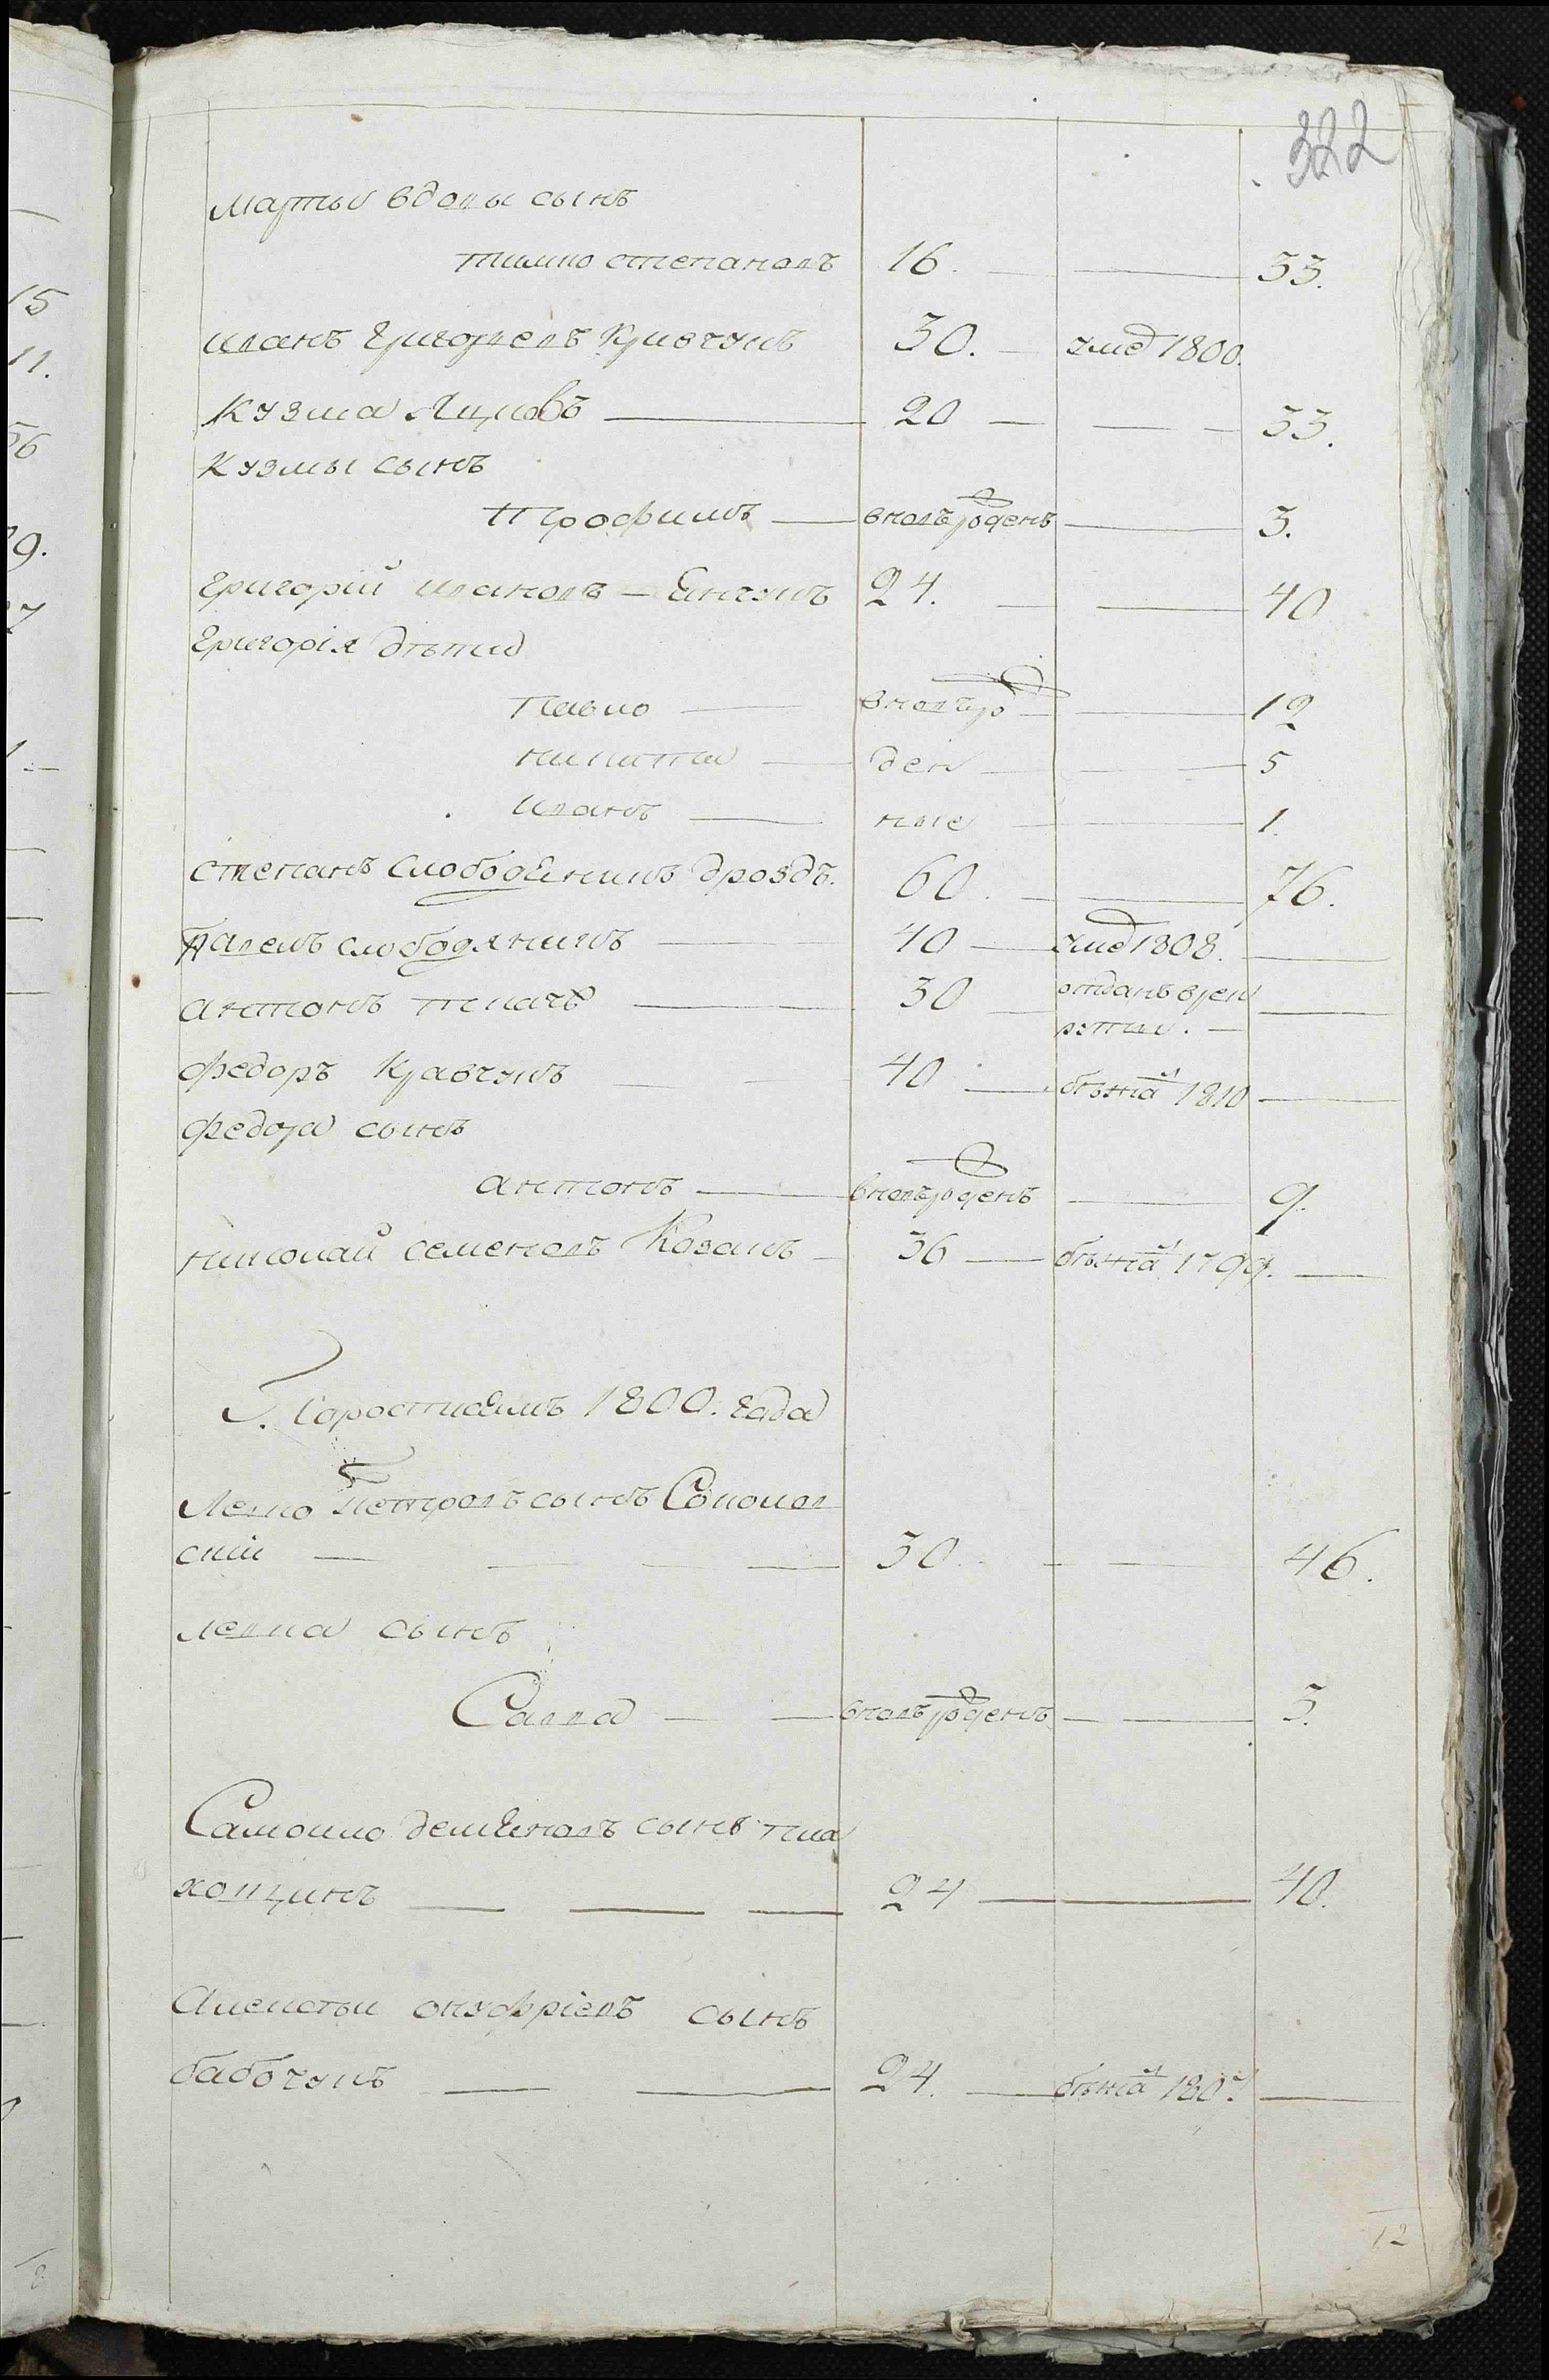 322
Марты вдовы сынъ
тимко степановъ 16. 33.
иванъ Григорьевъ Кривчукъ 30. умер 1800.
Кузма Яцковъ 20 33.
Кузмы сынъ
Трофимъ вновь рожденъ 3.
Григорій ивановъ Янчукъ 24. 40
Григорія дѣти
Павло вновь ро 12
никита ден 5
иванъ ные 1.
степанъ слободянникъ дроздъ. 60. 76.
Павелъ слободяникъ 40 умер 1808.
антонъ ткачъ 30 отданъ врек
рути.
федоръ Кравчукъ 40 бѣжал 1810
федора сынъ
антонъ вновь рожденъ 9.
николай семеновъ Козакъ 36 бѣжал 1799.
коростиямъ 1800. года
Левко Петровъ сынъ Соколов
скій 30. 46.
левка сынъ
Савва вновь рожденъ 3.
Самойло демяновъ сынъ
24 40.
Алексѣй онуфріевъ сынъ
бабочукъ 24. бѣжал 1807
12